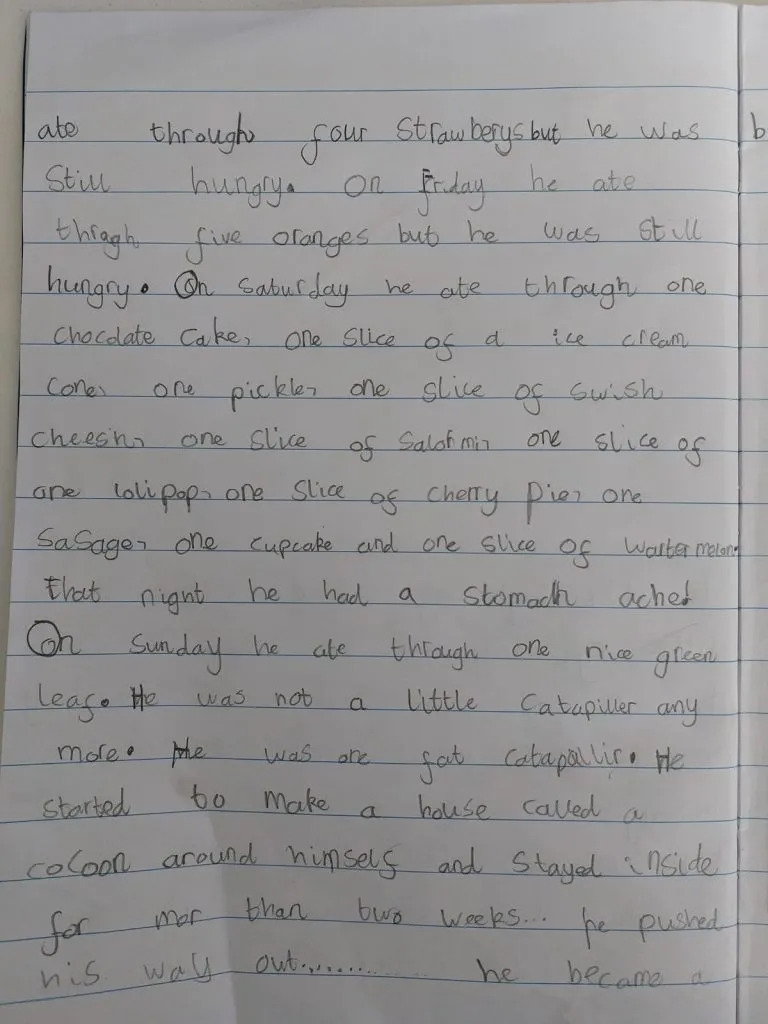 ate through four Strawberys but he was
Still hungry. On Friday he ate
thragh five oranges but he was still
hungry. On Saturday he ate through one
chocolate cake, one slice of a ice cream
cone, one pickle, one slice of swish
cheesh, one slice of Salahmi, one slice of
one lolipop, one slice of cherry pie, one
Sasage, one cupcake and one slice of waRtermelon.
that night he had a stomach ache!
On Sunday he ate through one nice green
leaf. He was not a little Catapiller any
more. He was one fat catapallir. He
started to make a house called a
cocoon around himself and stayed inside
for mor than two weeks... he pushed
his way out............. he became a
b